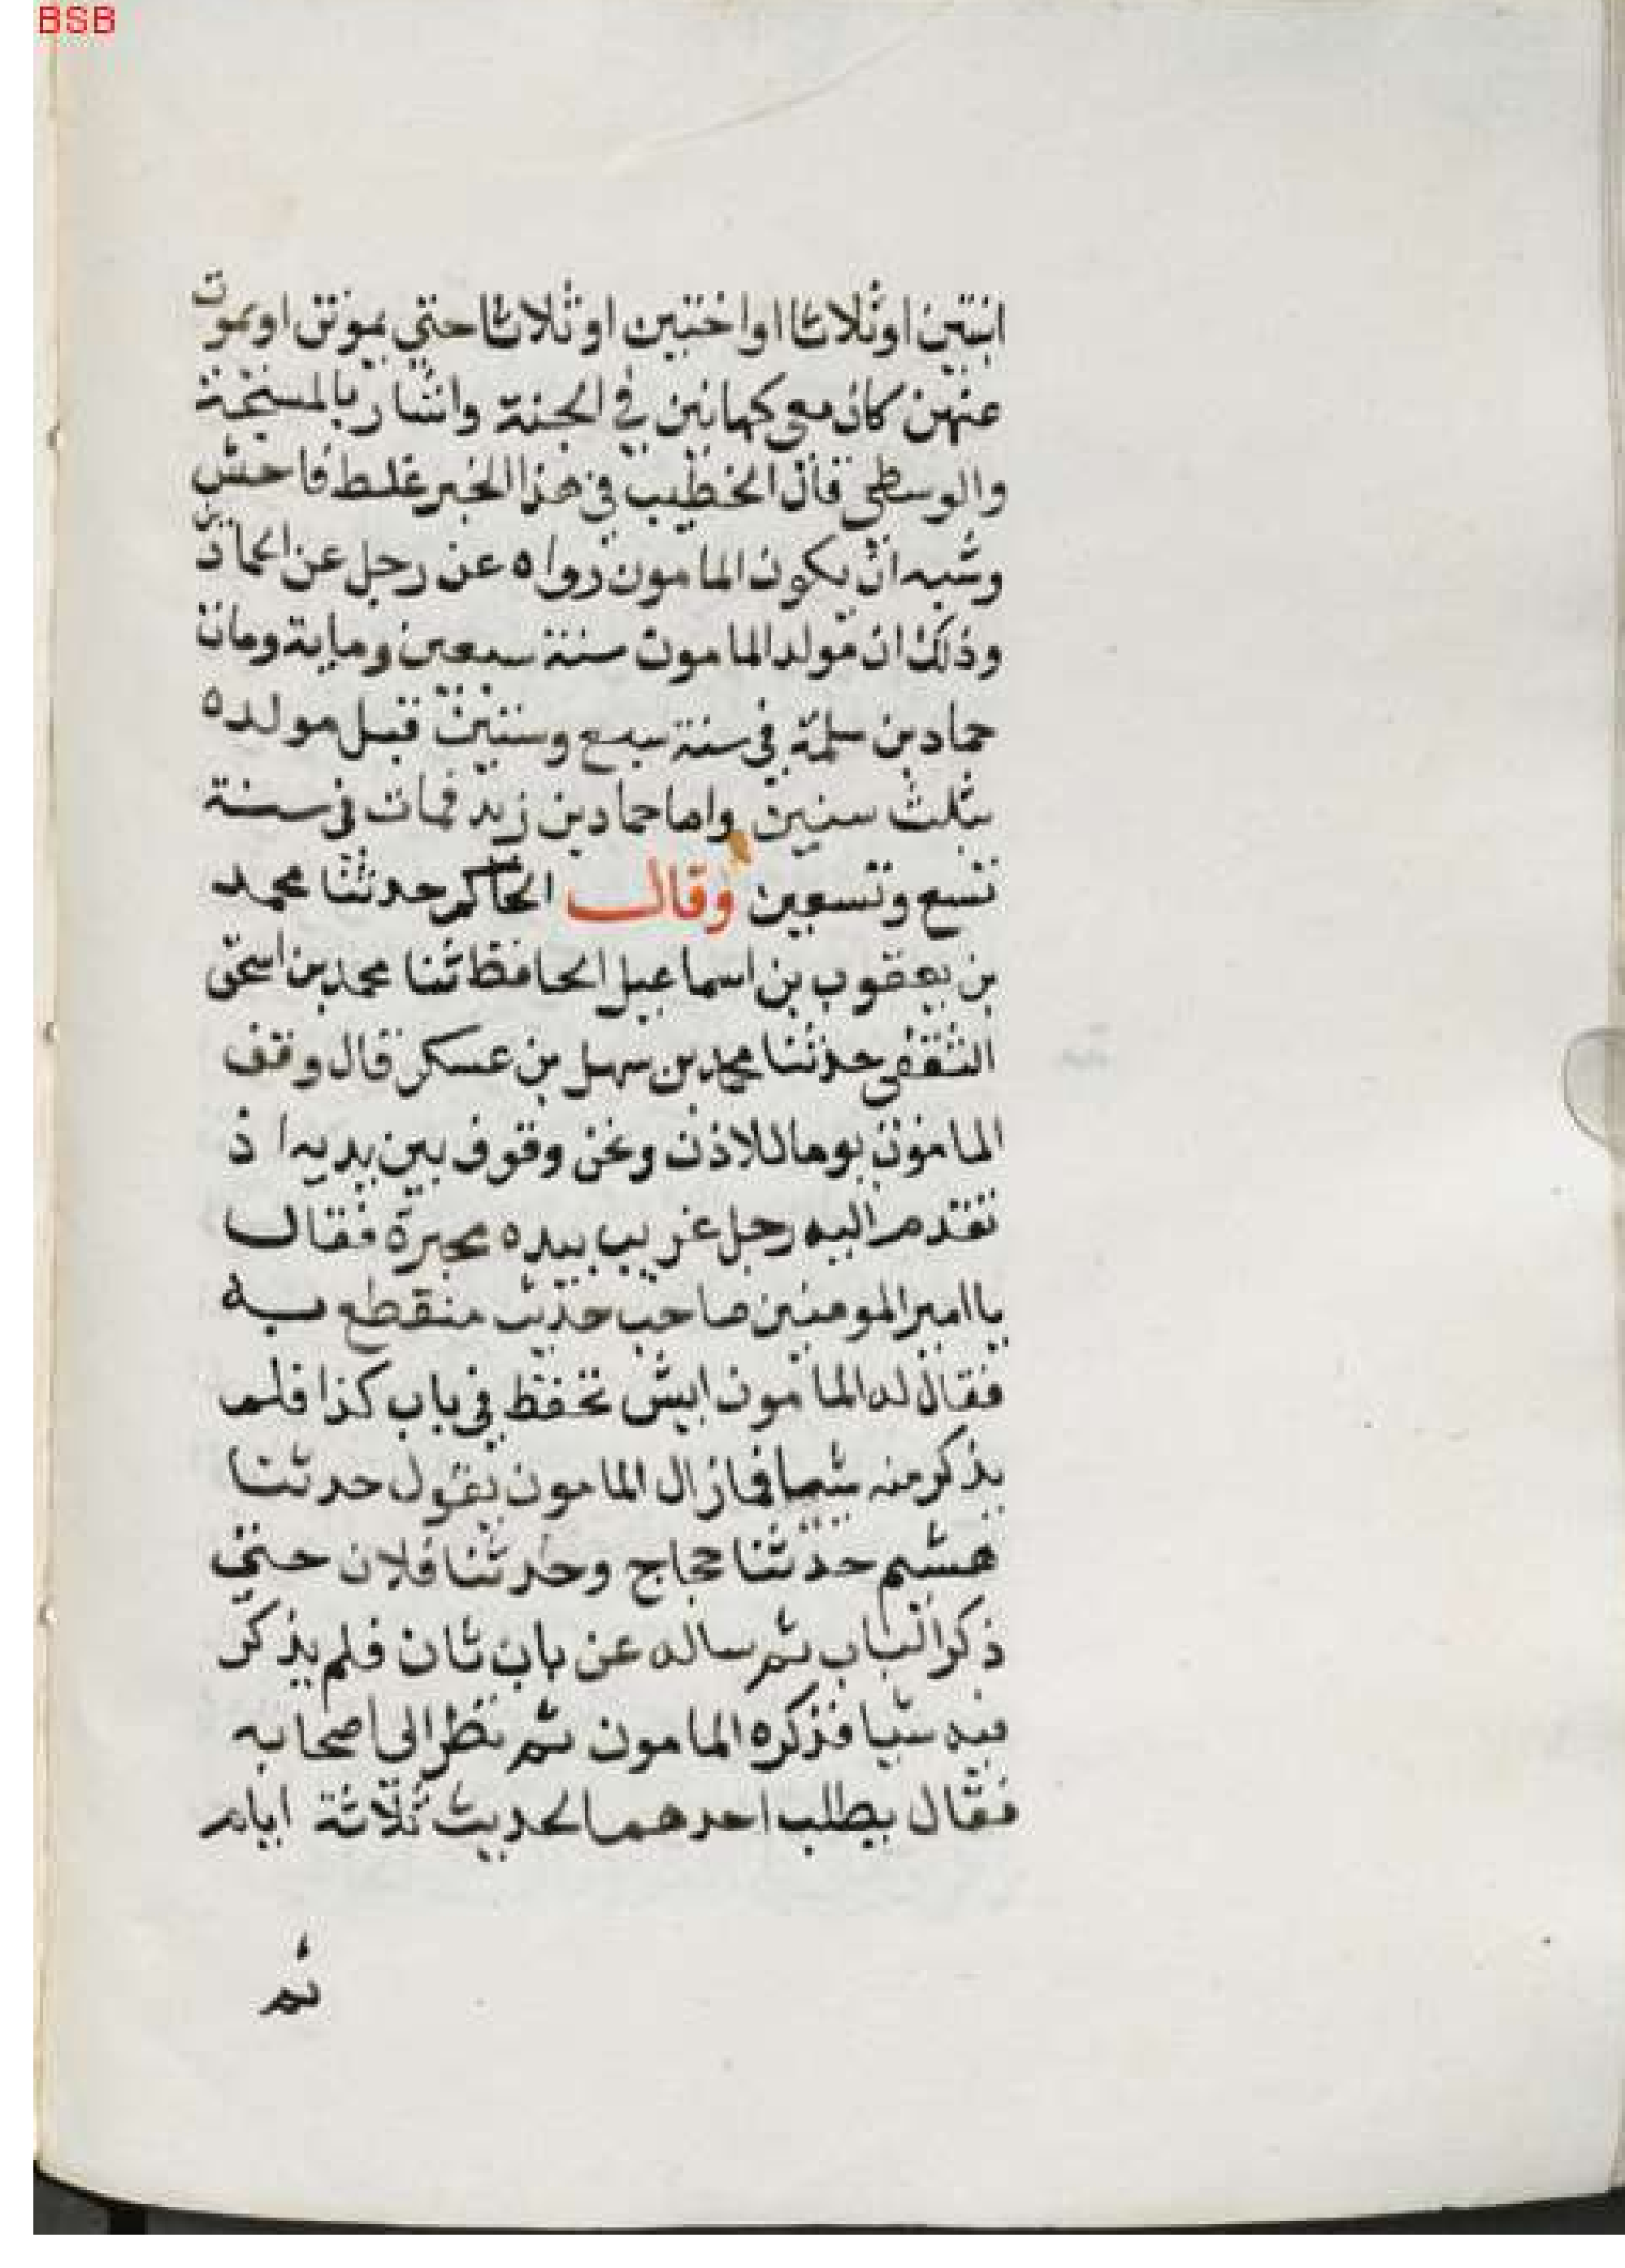 BSB
ابنتين او ثلاثا او اختين او ثلاثا حتى يموتن او يموت
عنهن كان معي كهاتين في الجنة واشار بالمسبحة
والوسطى قال الخطيب في هذا الخبر غلط فاحش
وشبه ان يكون المامون رواه عن رجل عن الحمادين
وذلك ان مولد المامون سنة سبعين وماية ومات
حماد بن سلمة في سنة سبع وستين قبل مولده
بثلث سنين واما حماد بن زيد فمات في سنة
تسع وتسعين وقال الحاكم حدثنا محمد
بن يعقوب بن اسماعيل الحافظ ثنا محمد بن اسحق
الثقفي حدثنا محمد بن سهل بن عسكر قال وقف
المامون يوما للاذن ونحن وقوف بين يديه اذ
تقدم اليه رجل غريب بيده محبرة فقال
يا امير المومنين صاحب حديث منقطع به
فقال له المامون ايش تحفظ في باب كذا فلم
يذكر منه شيا فما زال المامون يقول حدثنا
هشيم حدثنا حجاج وحدثنا فلان حتى
ذكر الباب ثم ساله عن باب ثان فلم يذكر
فيه شيا فذكره المامون ثم نظر الى اصحابه
فقال يطلب احدهم الحديث ثلاثة ايام
ثم